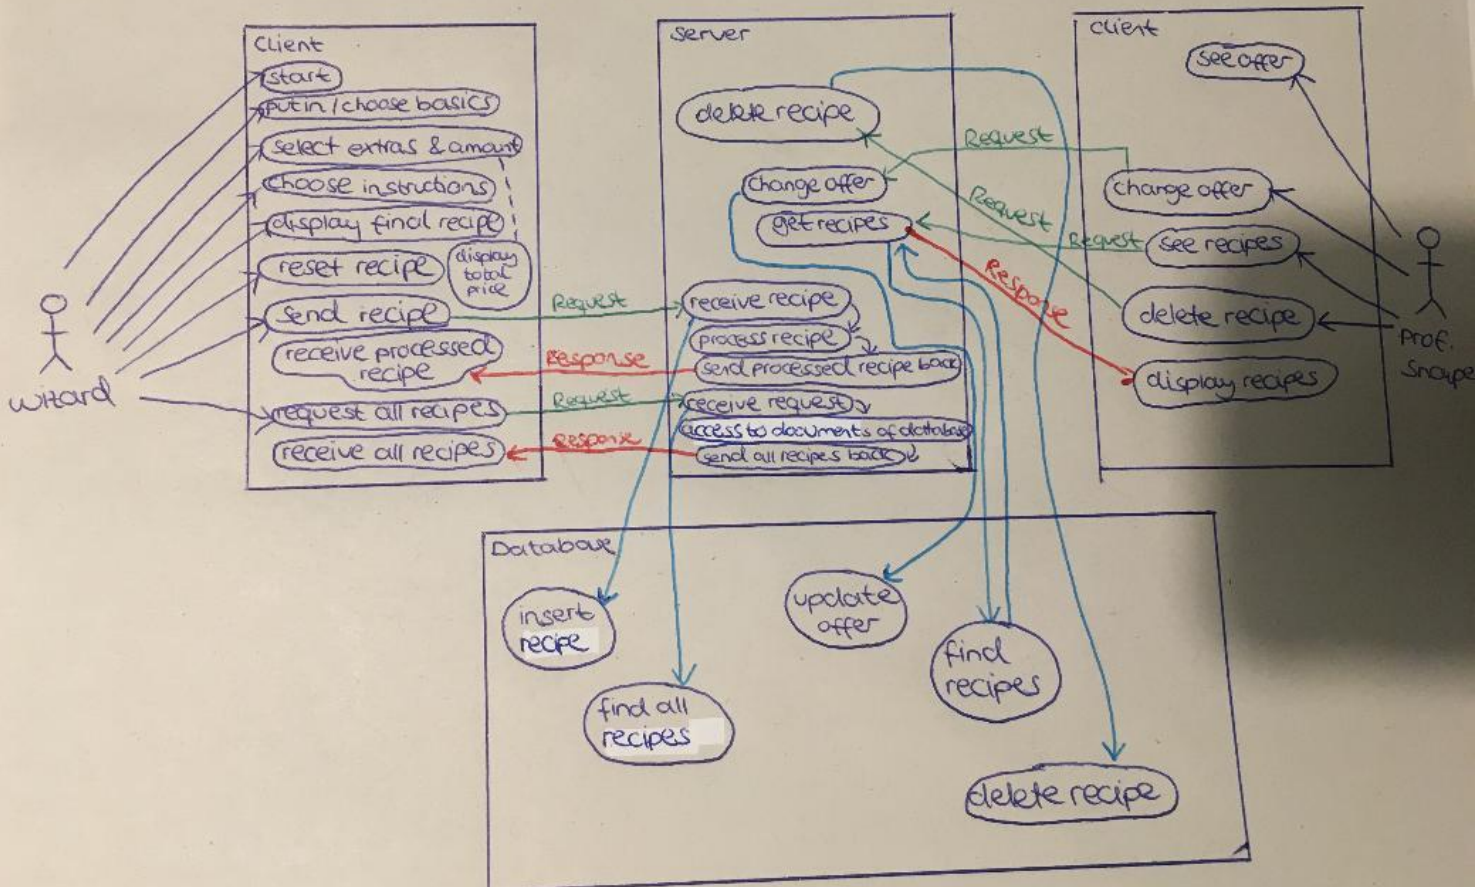 Client
start
put in / choose basics
select extras & amount
choose instructions
display final recipe
reset recipe
display
total
price
send recipe
receive processed
recipe
request all recipes
receive all recipes
Wizard
Request
Response
Request
Response
Server
delete recipe
change offer
get recipes
receive recipe
process recipe
send processed recipe back
receive request
access to documents of database
send all recipes back
Request
Request
Request
Response
Client
see offer
change offer
see recipes
delete recipe
display recipes
Prof.
Snape
Database
insert
recipe
find all
recipes
update
offer
find
recipes
delete recipe